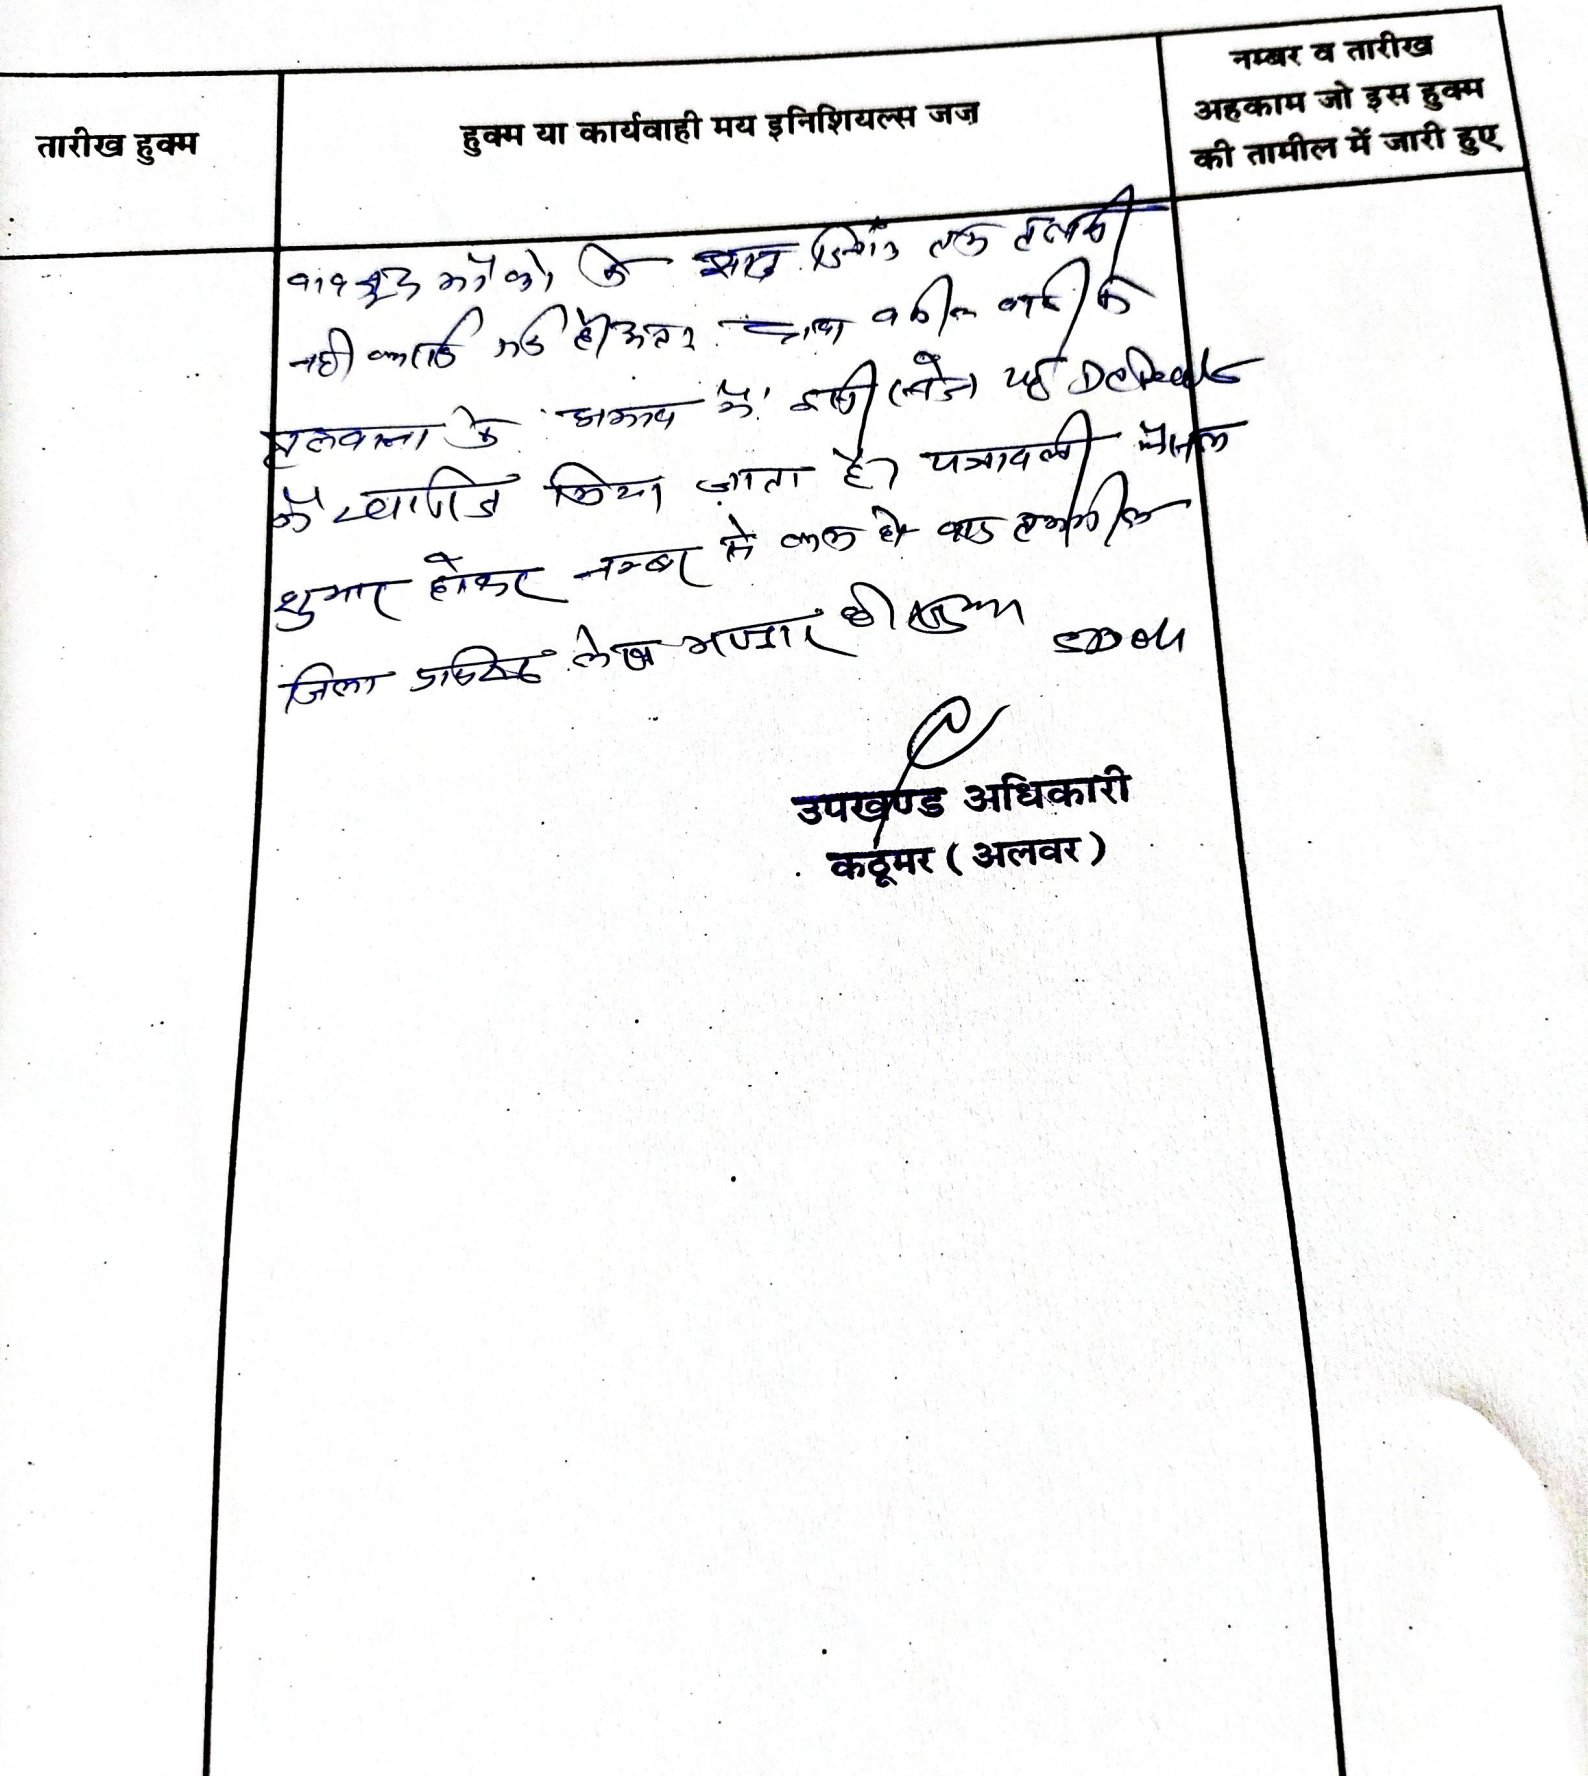 तारीख हुक्म
हुक्म या कार्यवाही मय इनिशियल्स जज़
नम्बर व तारीख
अहकाम जो इस हुक्म
की तामील में जारी हुए
बावजूद मौको के आज दिनांक तक तलबी
नही कराई गई है। अतः वाद वकील वादी के
तलवाना के अभाव में इसी स्टेज पर Default
में खारिज किया जाता है। पत्रावली फैसल
शुमार होकर नम्बर से कम हो बाद तकमील
जिला अभिलेख भण्डार की जमा
SDO
उपखण्ड अधिकारी
कठूमर ( अलवर )